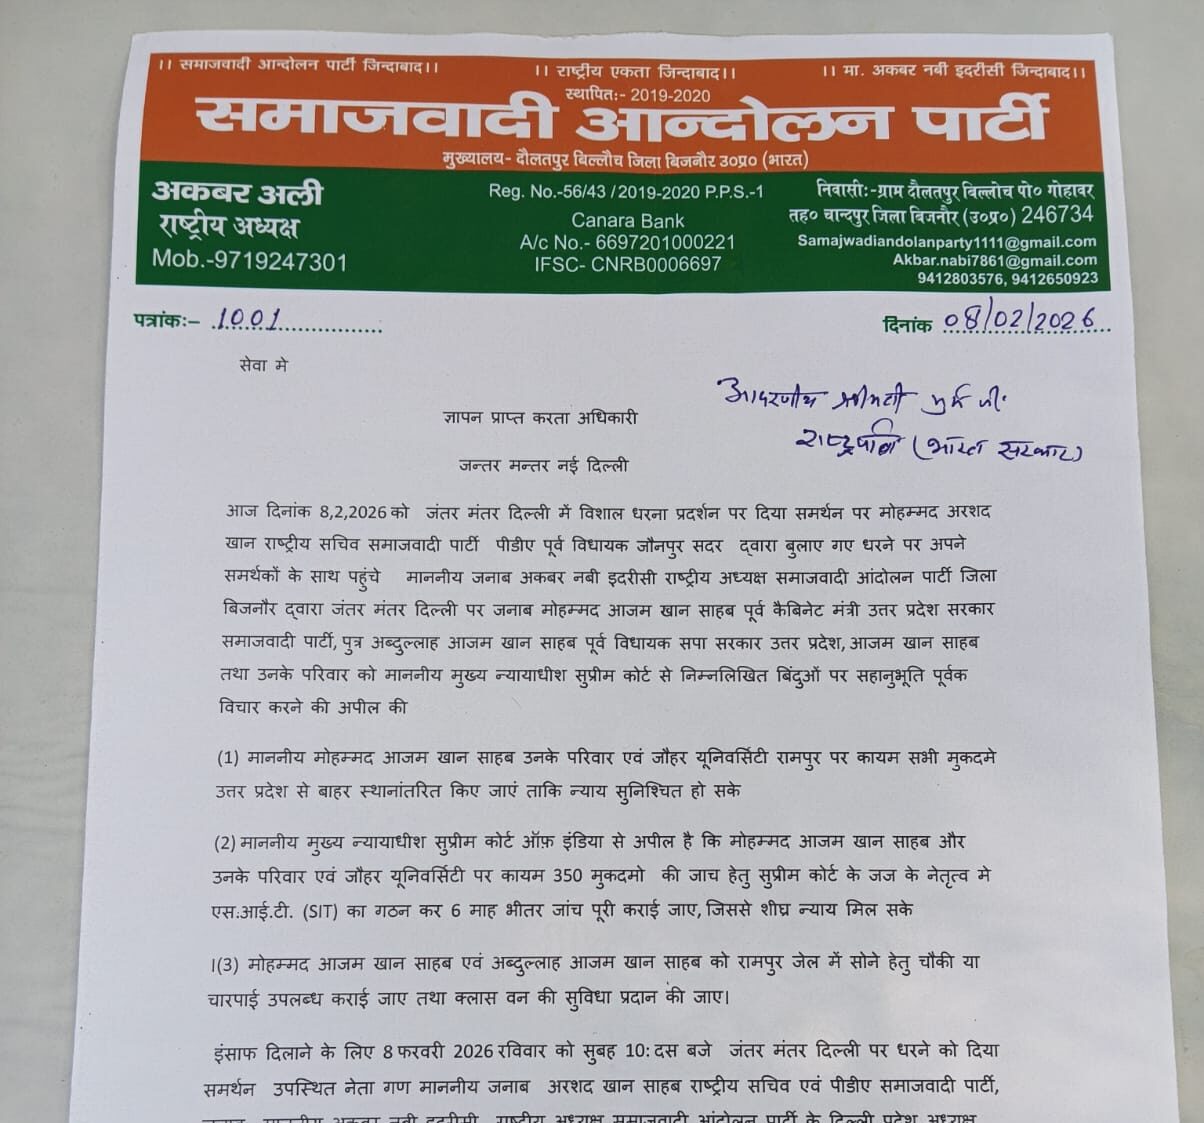 ।। समाजवादी आन्दोलन पार्टी जिन्दाबाद।।
।। राष्ट्रीय एकता जिन्दाबाद।।
।। मा. अकबर नबी इदरीसी जिन्दाबाद।।
स्थापितः- 2019-2020
समाजवादी आन्दोलन पार्टी
मुख्यालय- दौलतपुर बिल्लौच जिला बिजनौर उ०प्र० (भारत)
अकबर अली
राष्ट्रीय अध्यक्ष
Mob.-9719247301
Reg. No.-56/43 /2019-2020 P.P.S.-1
Canara Bank
A/c No.- 6697201000221
IFSC- CNRB0006697
निवासीः-ग्राम दौलतपुर बिल्लोच पो० गोहावर
तह० चान्दपुर जिला बिजनौर (उ०प्र०) 246734
Samajwadiandolanparty1111@gmail.com
Akbar.nabi7861@gmail.com
9412803576, 9412650923
पत्रांकः- 1001
दिनांक 08/02/2026
सेवा मे
आदरणीय श्रीमती मुर्मू जी
राष्ट्रपति (भारत सरकार)
ज्ञापन प्राप्त करता अधिकारी
जन्तर मन्तर नई दिल्ली
आज दिनांक 8,2,2026 को जंतर मंतर दिल्ली में विशाल धरना प्रदर्शन पर दिया समर्थन पर मोहम्मद अरशद
खान राष्ट्रीय सचिव समाजवादी पार्टी पीडीए पूर्व विधायक जौनपुर सदर द्वारा बुलाए गए धरने पर अपने
समर्थकों के साथ पहुंचे माननीय जनाब अकबर नबी इदरीसी राष्ट्रीय अध्यक्ष समाजवादी आंदोलन पार्टी जिला
बिजनौर द्वारा जंतर मंतर दिल्ली पर जनाब मोहम्मद आजम खान साहब पूर्व कैबिनेट मंत्री उत्तर प्रदेश सरकार
समाजवादी पार्टी, पुत्र अब्दुल्लाह आजम खान साहब पूर्व विधायक सपा सरकार उत्तर प्रदेश, आजम खान साहब
तथा उनके परिवार को माननीय मुख्य न्यायाधीश सुप्रीम कोर्ट से निम्नलिखित बिंदुओं पर सहानुभूति पूर्वक
विचार करने की अपील की
(1) माननीय मोहम्मद आजम खान साहब उनके परिवार एवं जौहर यूनिवर्सिटी रामपुर पर कायम सभी मुकदमे
उत्तर प्रदेश से बाहर स्थानांतरित किए जाएं ताकि न्याय सुनिश्चित हो सके
(2) माननीय मुख्य न्यायाधीश सुप्रीम कोर्ट ऑफ़ इंडिया से अपील है कि मोहम्मद आजम खान साहब और
उनके परिवार एवं जौहर यूनिवर्सिटी पर कायम 350 मुकदमो की जाच हेतु सुप्रीम कोर्ट के जज के नेतृत्व मे
एस.आई.टी. (SIT) का गठन कर 6 माह भीतर जांच पूरी कराई जाए, जिससे शीघ्र न्याय मिल सके
।(3) मोहम्मद आजम खान साहब एवं अब्दुल्लाह आजम खान साहब को रामपुर जेल में सोने हेतु चौकी या
चारपाई उपलब्ध कराई जाए तथा क्लास वन की सुविधा प्रदान की जाए।
इंसाफ दिलाने के लिए 8 फरवरी 2026 रविवार को सुबह 10: दस बजे जंतर मंतर दिल्ली पर धरने को दिया
समर्थन उपस्थित नेता गण माननीय जनाब अरशद खान साहब राष्ट्रीय सचिव एवं पीडीए समाजवादी पार्टी,
माननीय अकबर नबी इदरीसी राष्ट्रीय अध्यक्ष समाजवादी आंदोलन पार्टी के दिल्ली प्रदेश अध्यक्ष